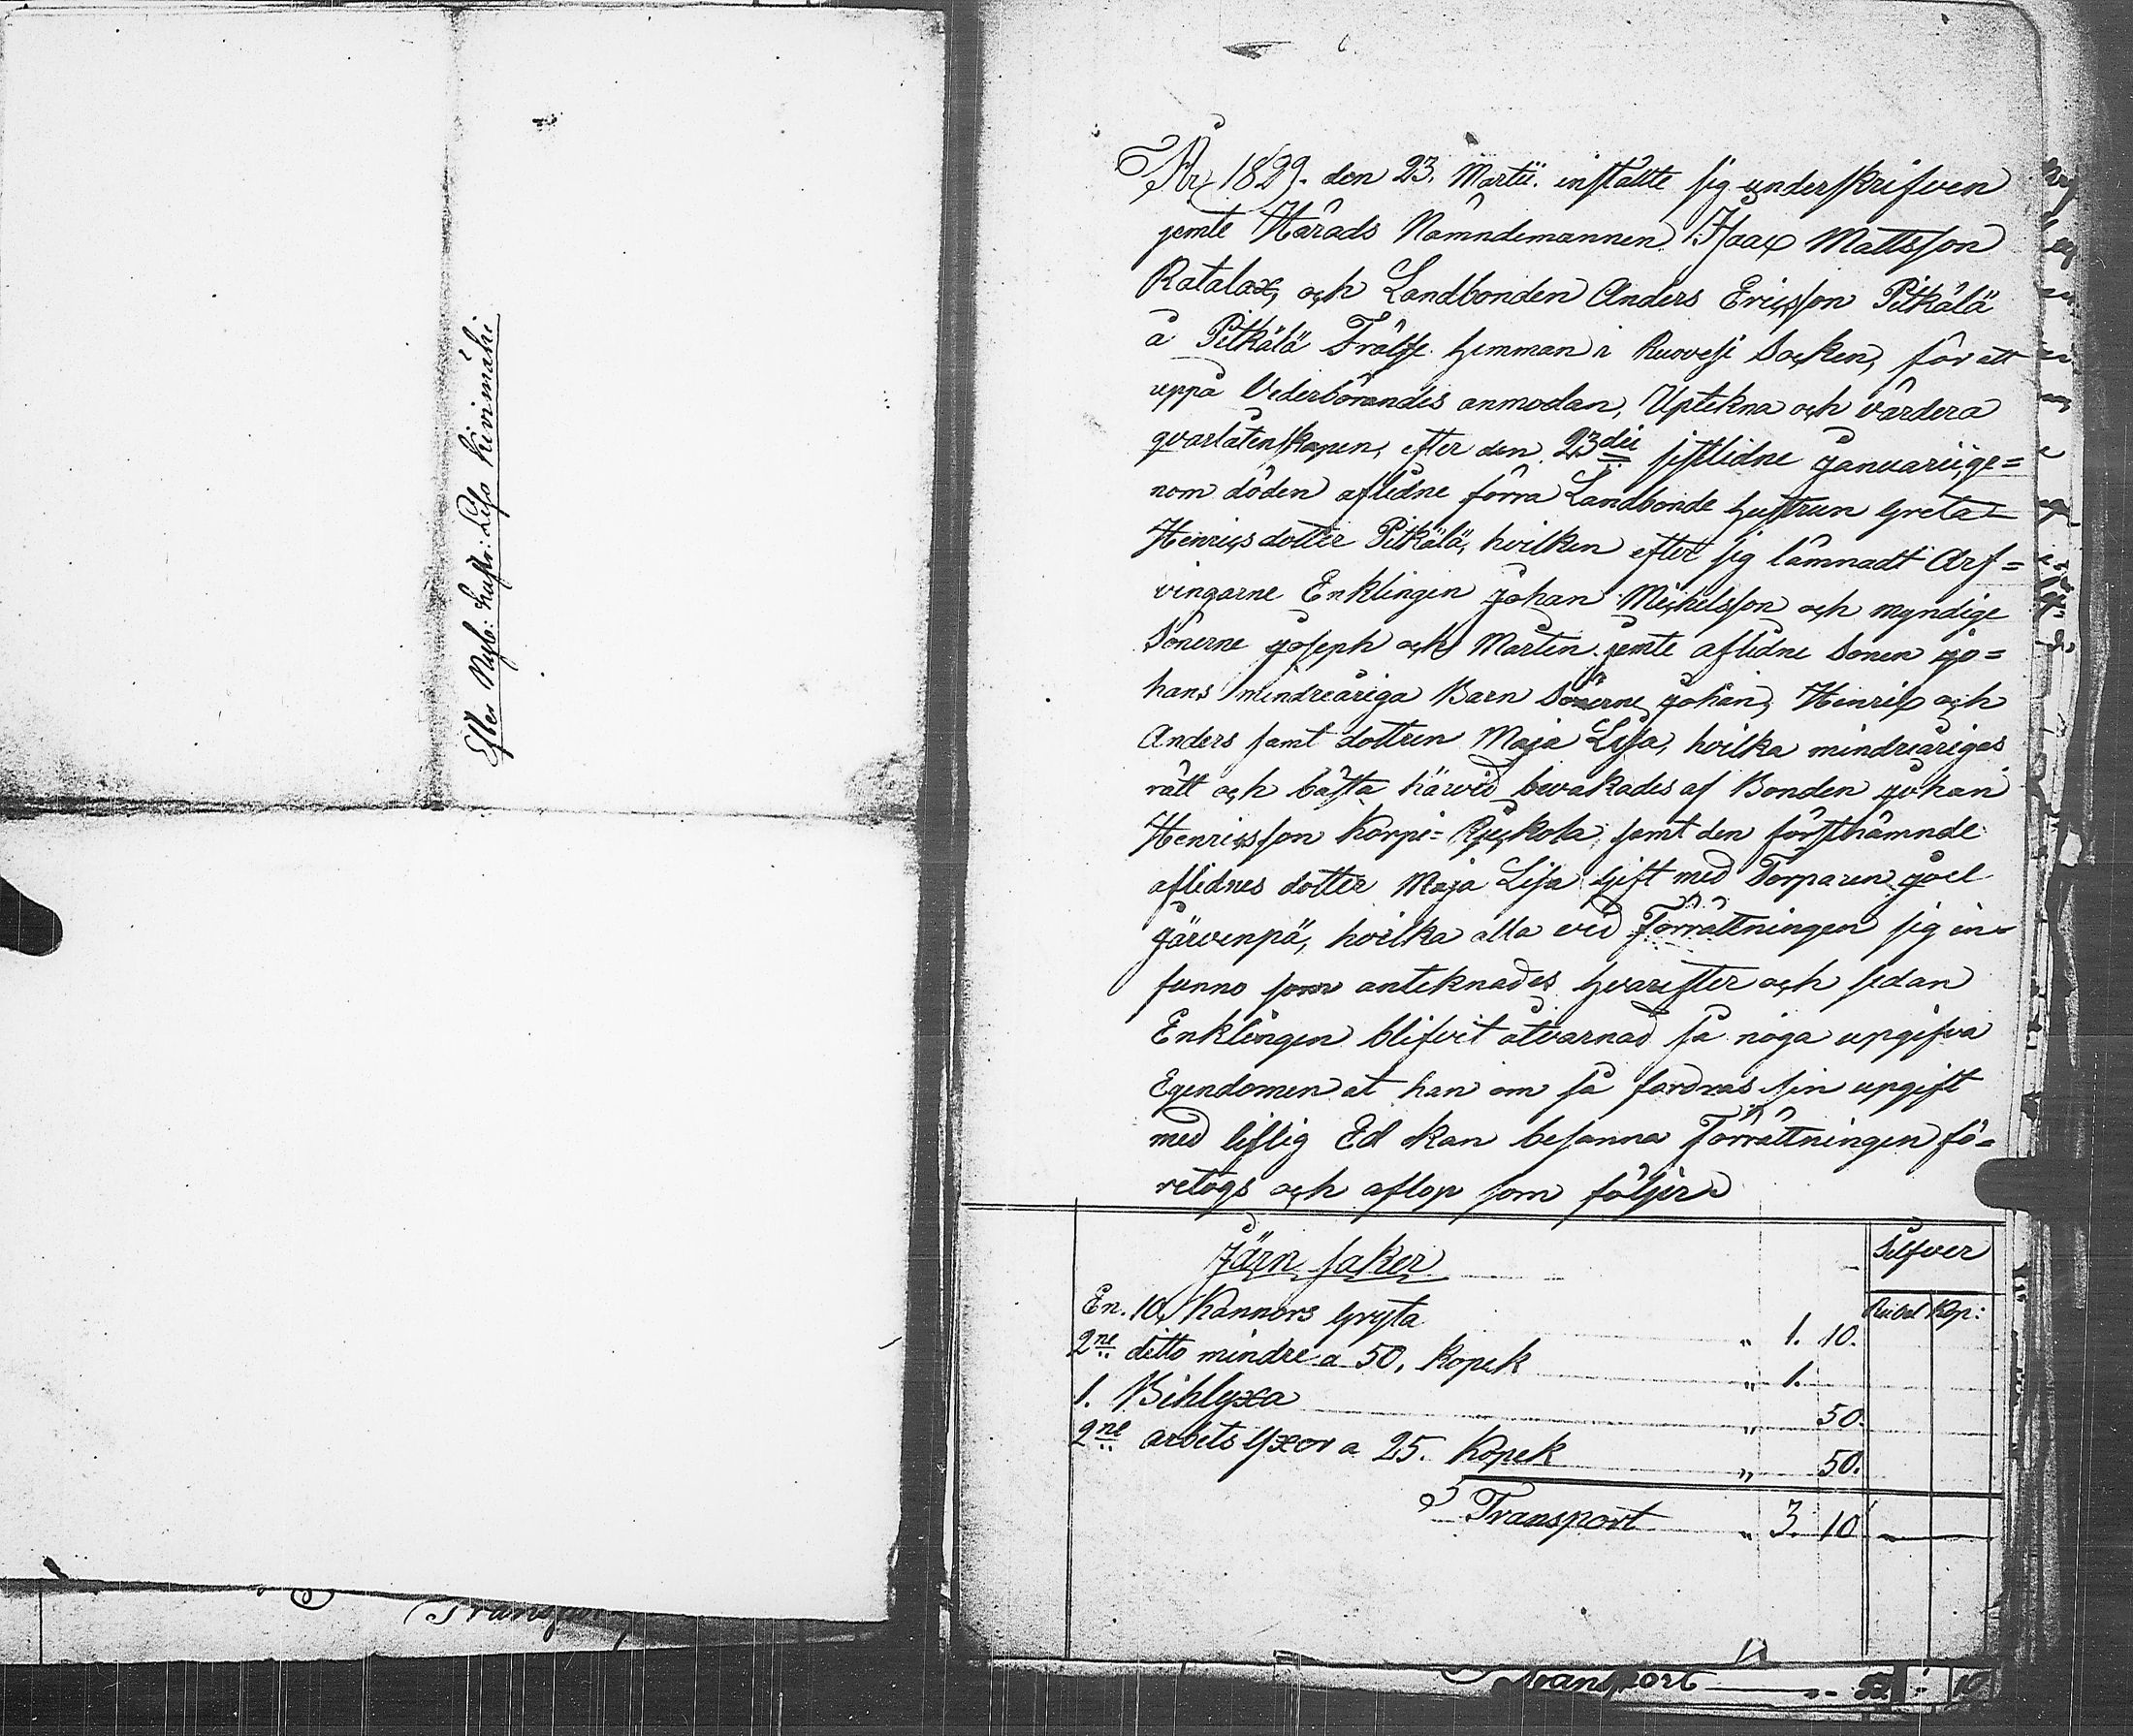 Efter Nyb: hustr: Lisa Kinimäki
År 1829. den 23. Martii. instälte sig underskrifven
jemte Härads Nämndemannen Isaac Mattsson
Ratalax, och Landbonden Anders Ericsson Pitkälä
å Pitkälä Frälse hemman i Ruovesi Socken, för att
uppå Vederbörandes anmodan, Uptekna och värdera
qvarlåtenskapen, efter den 23dii sistlidne Januarii, ge=
nom döden aflidne förra Landbonde hustrun Greta
Henricsdotter Pitkälä, hvilken efter sig lämnadt Arf=
vingarne Enklingen Johan Michelsson och myndige
Sönerne Joseph och Mårten jemte aflidne Sonen Jo=
hans mindreåriga Barn Sönerne Johan, Henric och
Anders samt dottren Maja Lisa, hvilka mindreårigas
rätt och bästa härvid bevakades af Bonden Johan
Henricsson Korpi= samt den förstnämnde
aflidnes dotter Maja Lisa gift med Torparen Joel
Järvenpä, hvilka alla vid Förrättningen sig in=
funno som anteknades hvarefter och sedan
Enklingen blifvit åtvarnad så noga upgifva
Egendomen at han om så fordras sin upgift
med liflig Ed kan besanna Förrättningen fö=
retogs och aflop som följer
Silfver
Järn saker
Rubel Kop:
En. 10 Kannors Gryta " 1. 10.
2ne ditto mindre a 50. Kopek " 1.
1. Bihlyxa " 50.
2ne arbets yxor a 25. Kopek " 50.
Transport " 3. 10
Transport
Transport 10